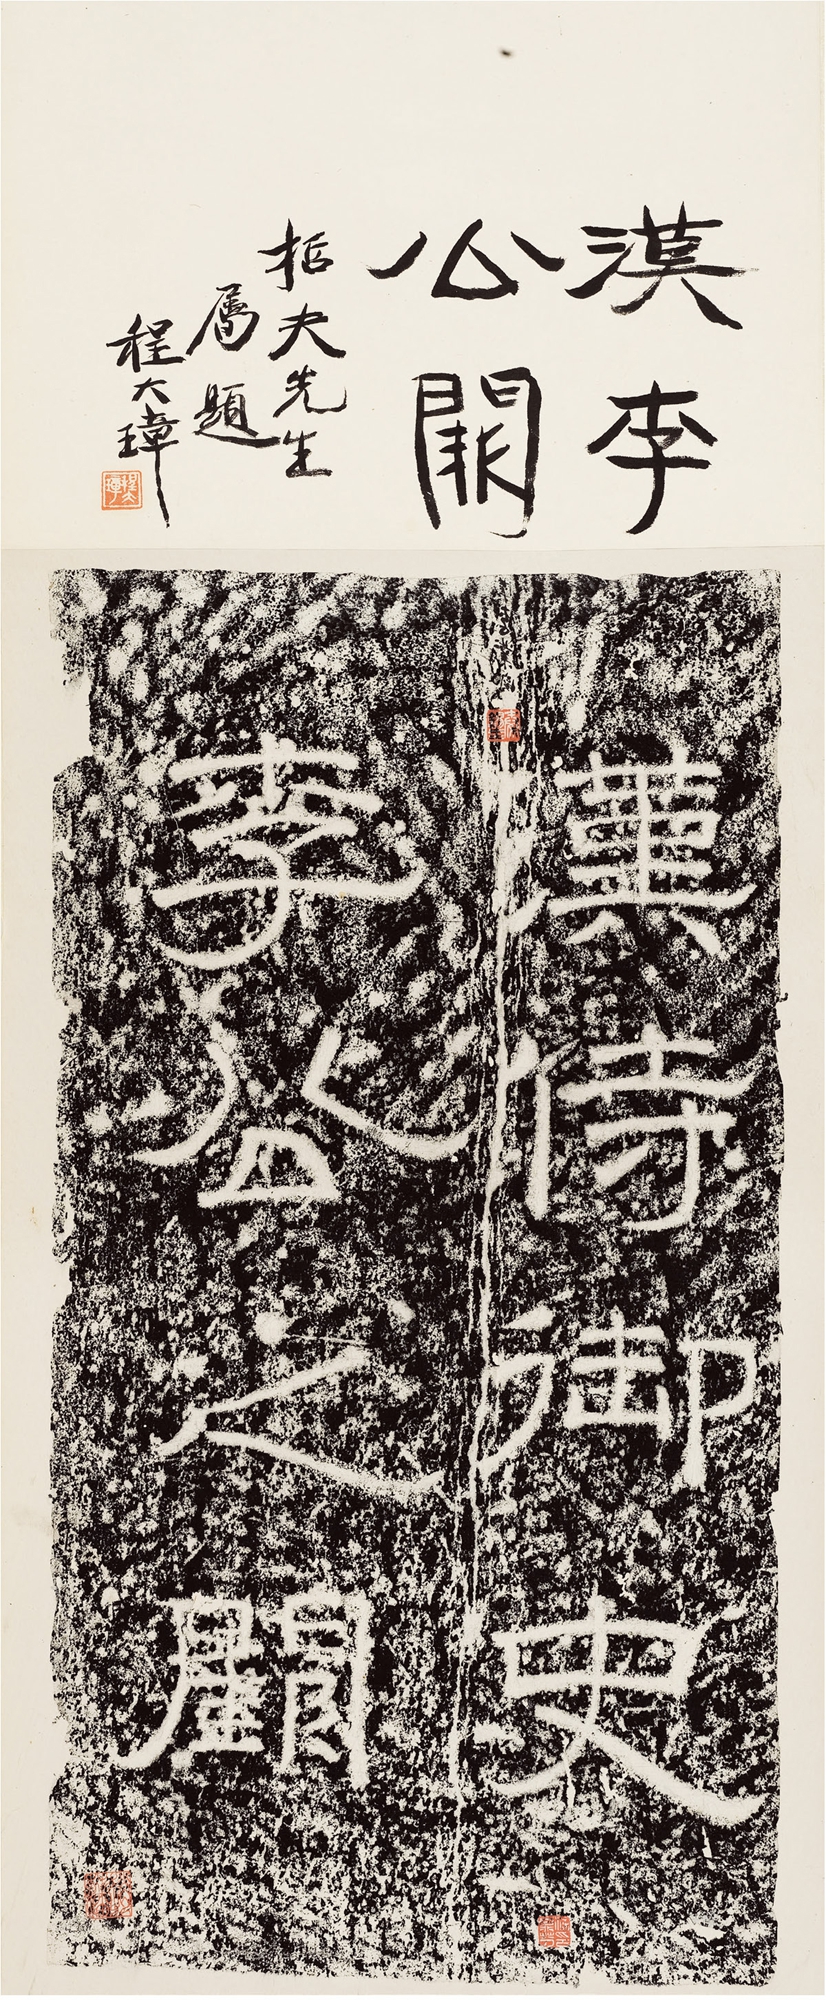 漢李
公闕
哲夫先生
屬題
程大璋
漢侍御史
李公之闕